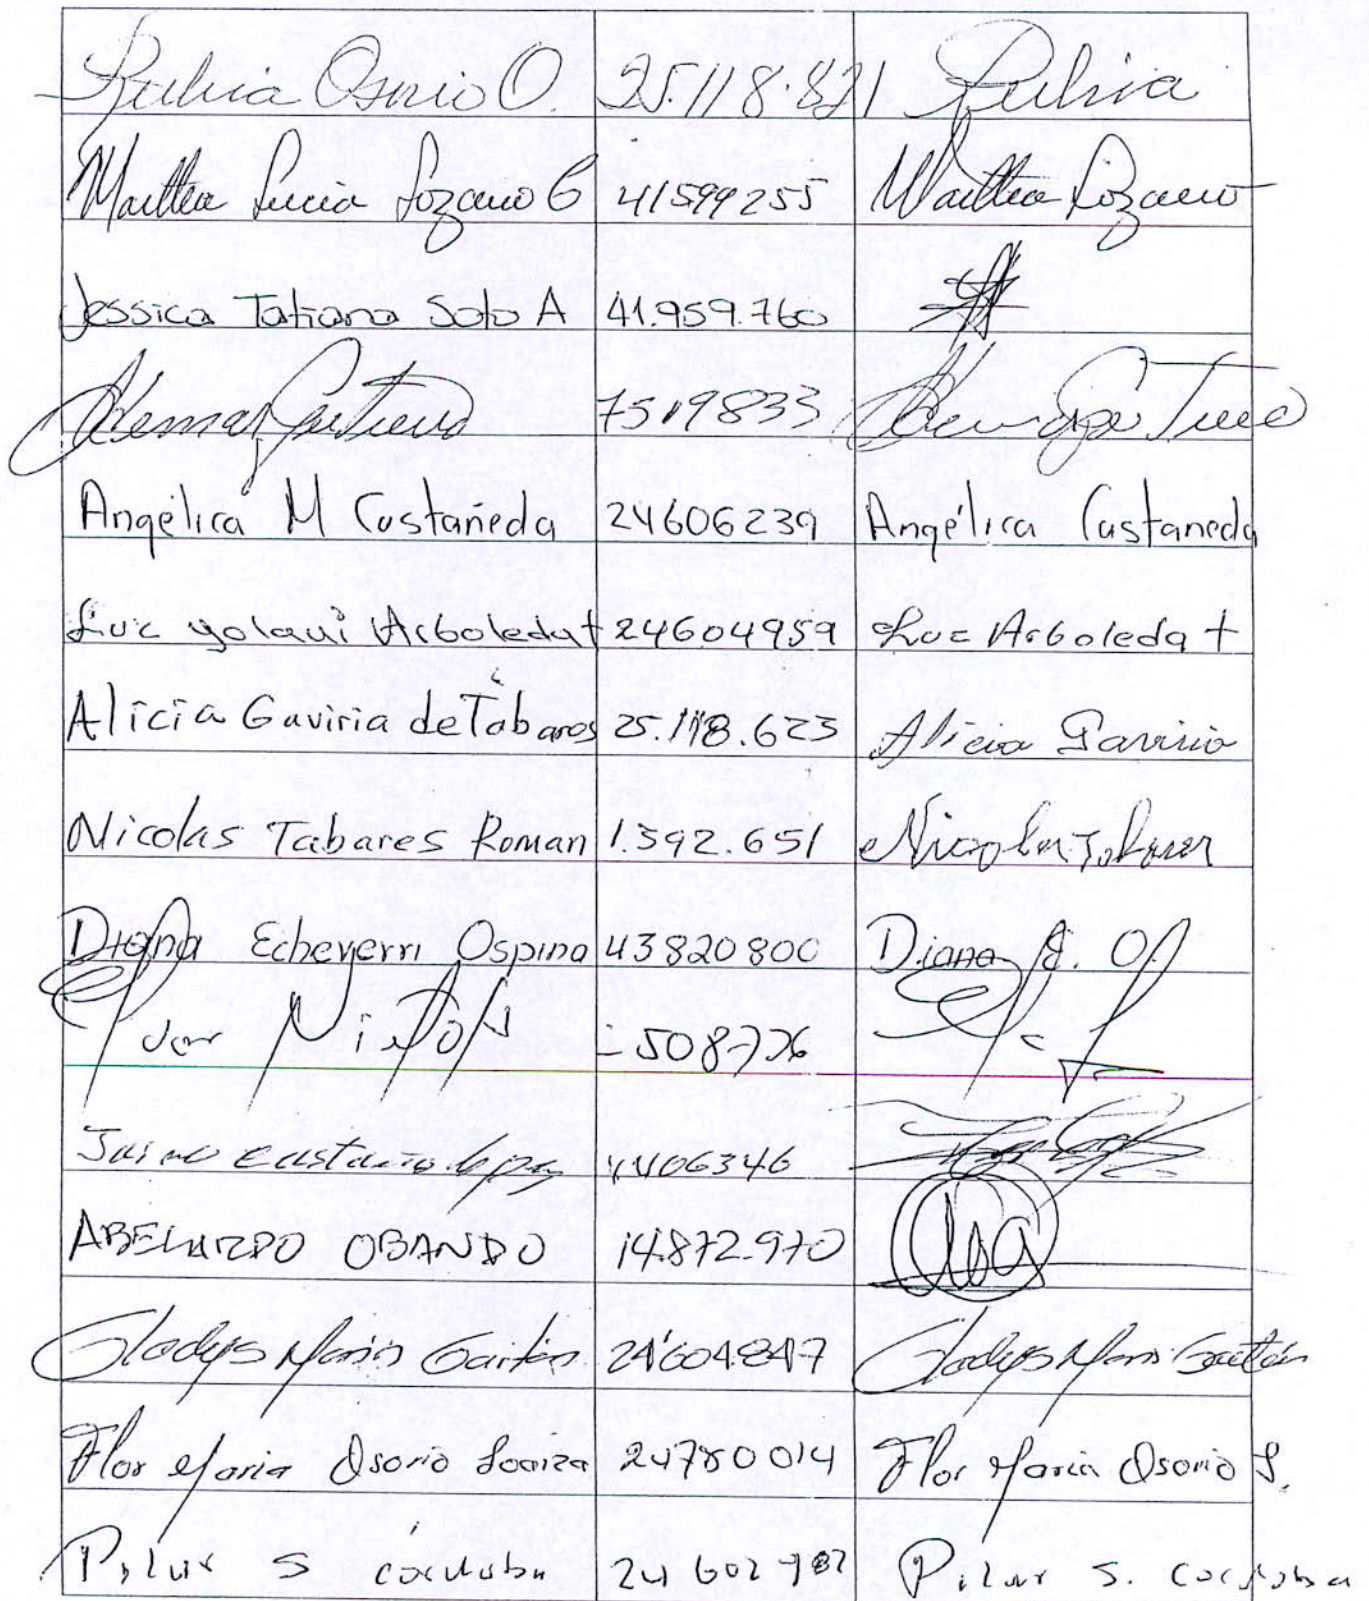 Rubia Osorio O. 25.118.821 Rubia
Martha Lucia Lozano G 41599255 Martha Lozano
Jessica Tatiana Soto A 41.959.760
7519833
Angélica M Castañeda 24606239 Angélica Castañeda
Luz yolaui Arboleda t 24604959 Luz Arboleda t
Alicia Gaviria de Tabares 25.118.623 Alicia Gaviria
Nicolas Tabares Roman 1.392.651 Nicolas Tabares
Diana Echeverri Ospina 43820800 Diana E. O.
508776
Jaime castaño lopez 4406346
ABELARDO OBANDO 14.872.970
Gladys Marin Gaitán 24'604.847 Gladys Marin Gaitán
Flor Maria Osorio Loaiza 24780014 Flor Maria Osorio L.
Pilar S cordoba 24602782 Pilar S. Cordoba